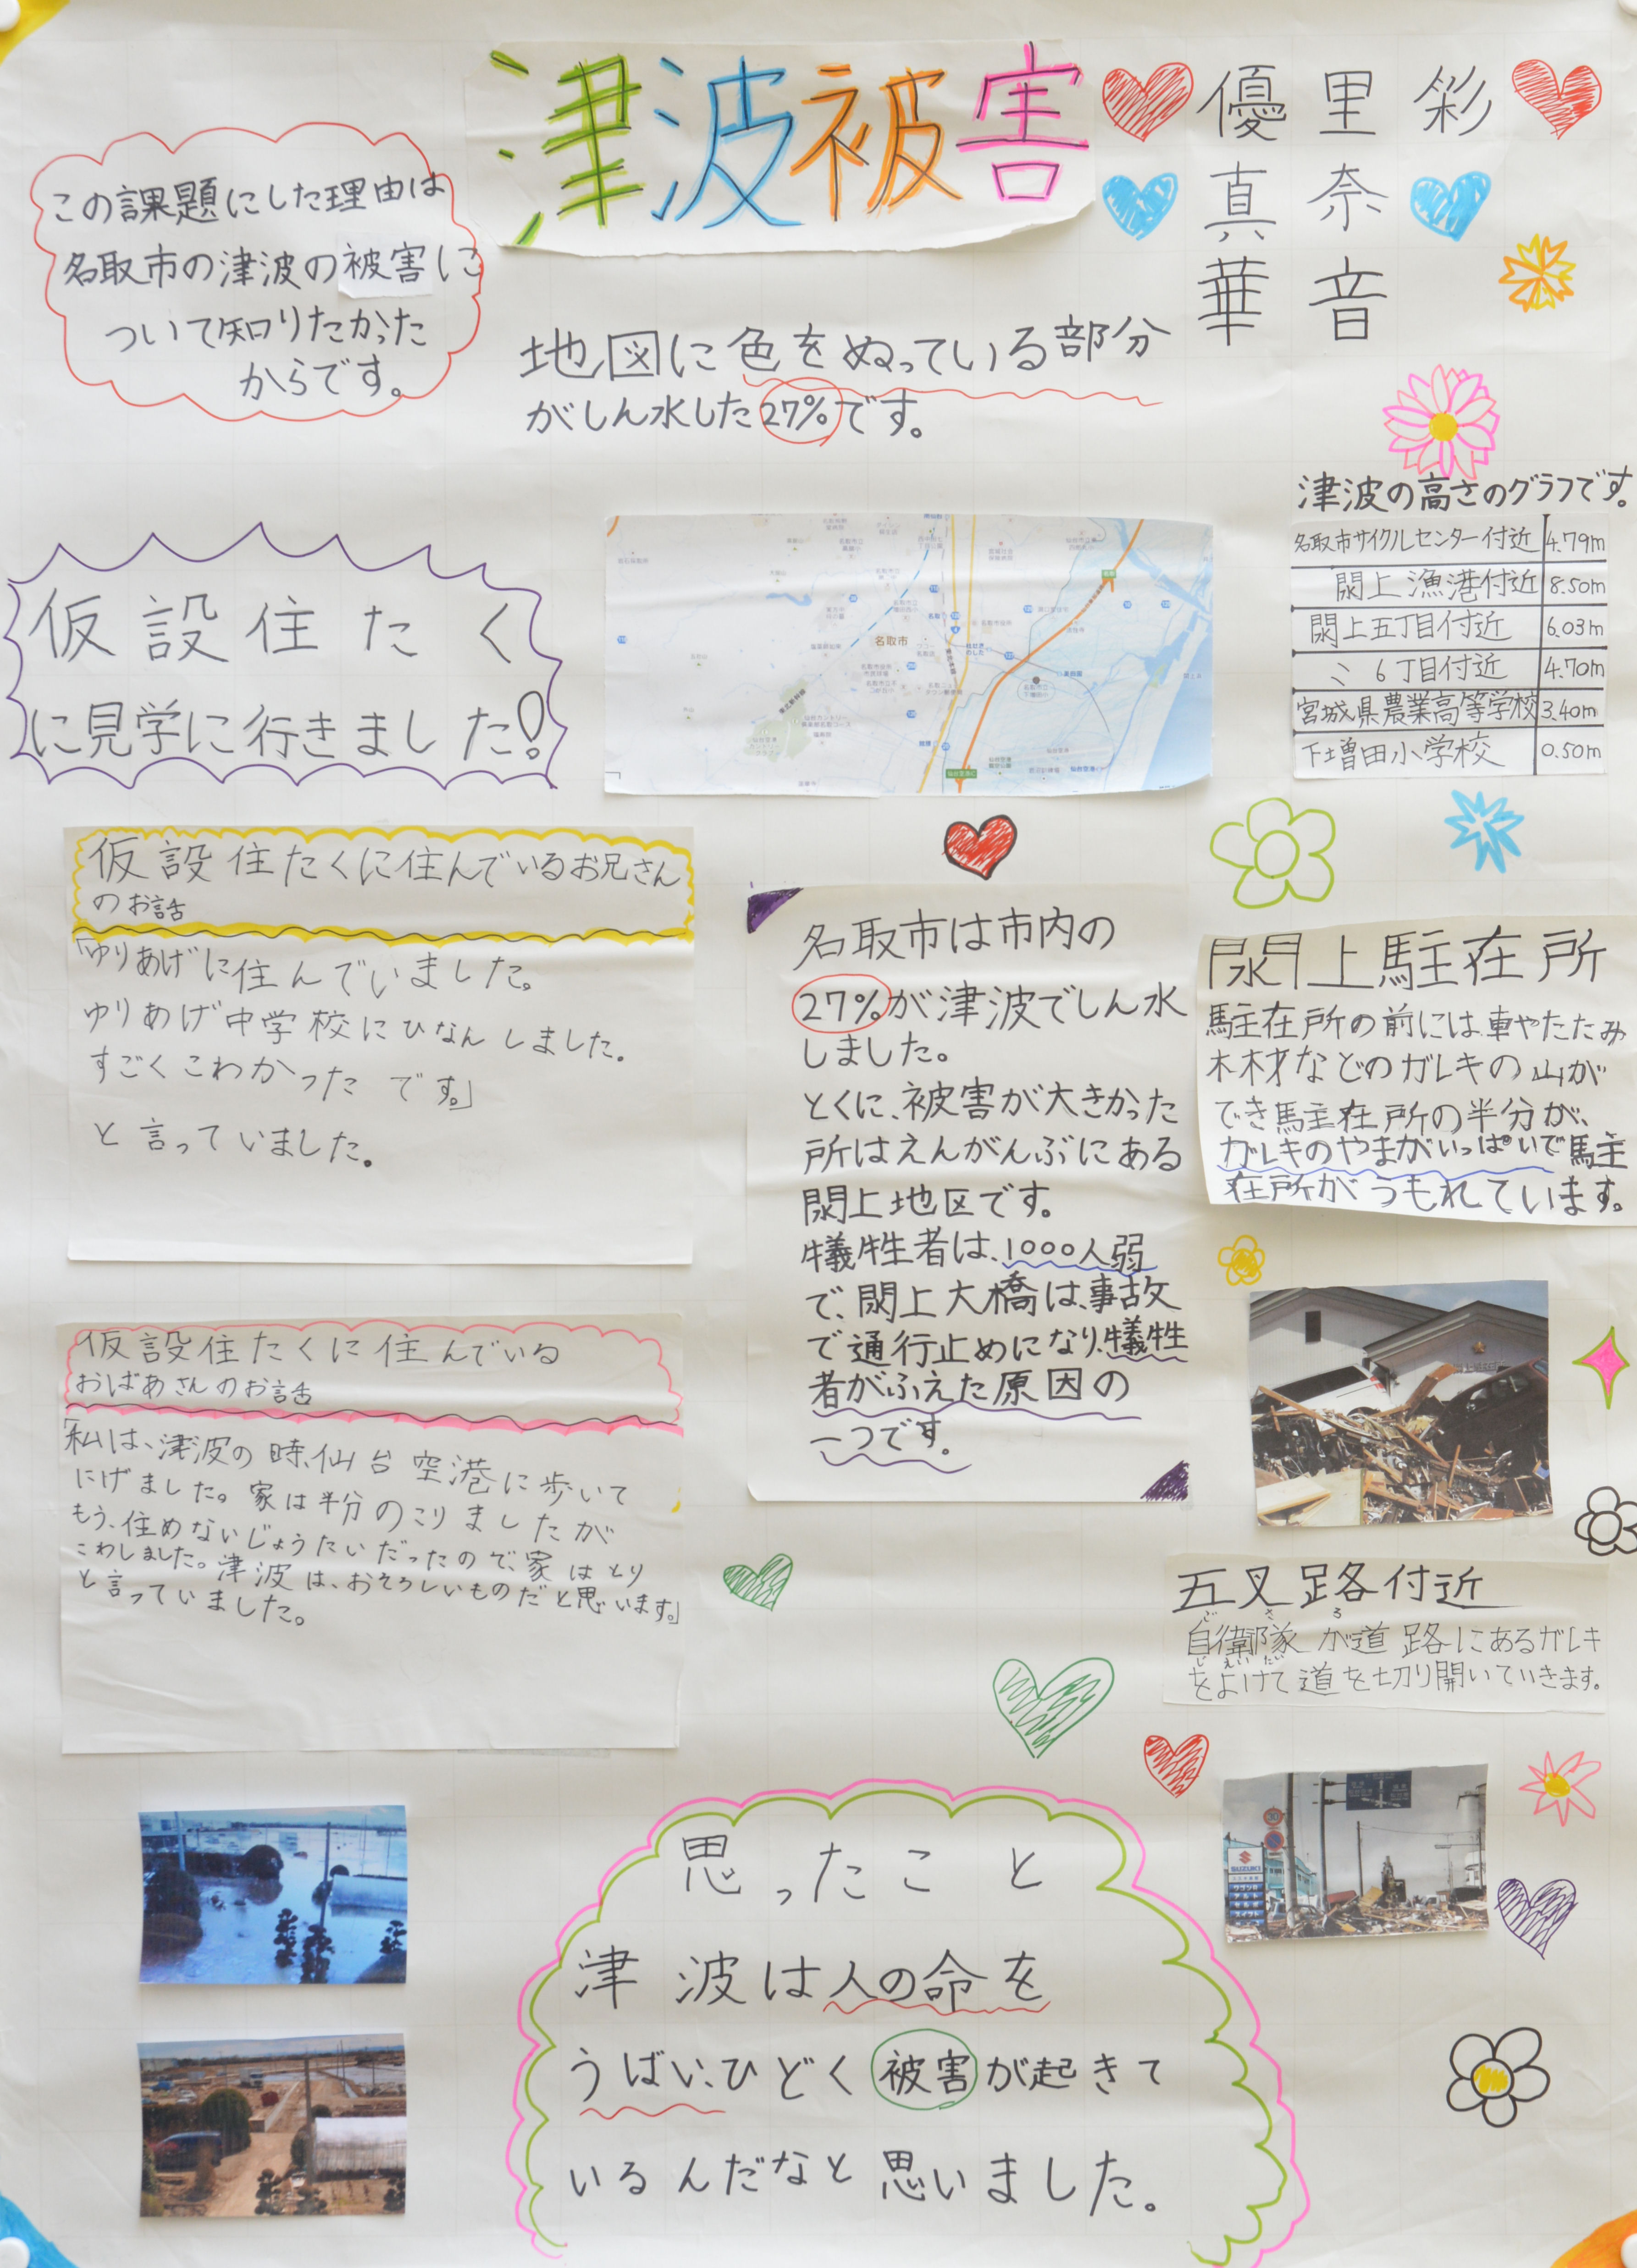 津波被害
優真華
里奈音
彩
この課題にした理由は
名取市の津波の被害に
ついて知りたかった
からです。
地図に色をぬっている部分
がしん水した27%です。
津波の高さのグラフです。
名取市サイクルセンター付近 4.79m
閖上漁港付近 8.50m
閖上五丁目付近 6.03m
〃 6丁目付近 4.70m
宮城県農業高等学校 3.40m
下増田小学校 0.50m
名取市
仮設住たく
に見学に行きました!
仮設住たくに住んでいるお兄さん
のお話
「ゆりあげに住んでいました。
ゆりあげ中学校にひなんしました。
すごくこわかったです。」
と言っていました。
名取市は市内の
27%が津波でしん水
しました。
とくに、被害が大きかった
所はえんがんぶにある
閖上地区です。
犠牲者は、1000人弱
で、閖上大橋は、事故
で通行止めになり、犠牲
者がふえた原因の
一つです。
閖上駐在所
駐在所の前には、車やたたみ
木材などのガレキの山が
でき駐在所の半分が、
ガレキのやまがいっぱいで駐
在所がうもれています。
仮設住たくに住んでいる
おばあさんのお話
「私は、津波の時、仙台空港に歩いて
にげました。家は半分のこりましたが
もう、住めないじょうたいだったので、家はとり
こわしました。津波は、おそろしいものだと思います。」
と言っていました。
五叉路付近
ごさろ
自衛隊が道路にあるガレキ
じえいたい
をよけて道を切り開いていきます。
SUZUKI
思ったこと
津波は人の命を
うばい、ひどく被害が起きて
いるんだなと思いました。